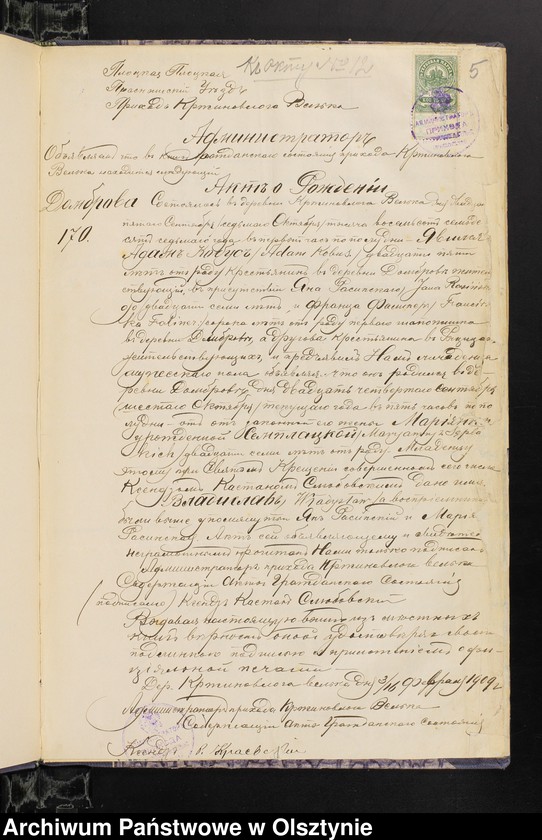 Къ акту № 12
5
Прасныскій Уѣздъ
Приходъ Кржиновлога Велька
Администраторъ
Объявляетъ что въ книгѣ гражданскаго состоянія прихода Кржиновлога
Велька находится слѣдующій
Актъ о Рожденіи
Домброва
170.
Состоялось въ деревни Кржиновлога Велька дня двадцать
пятаго Сентября /седьмаго Октября/ тысяча восемьсотъ семьде
сятъ седьмаго года въ первой часъ по полудни. Явился
Адамъ Кобусъ /Adam Kobus/ двадцати пяти
лѣтъ отъ роду крестьянинъ въ деревни Домброва житель
ствующій, въ присутствіи Яна Расинскаго /Jana
двадцати семи лѣтъ, и Франца
сорока лѣтъ отъ роду перваго
въ деревни Домброва, а другова крестьянина въ
жительствующихъ, и предъявилъ Намъ младенца
мужескаго пола объявляя, что онъ родился въ де
ревни Домброва дня двадцать четвертаго Сентября
/шестаго Октября/ текущаго года въ пять часовъ по по
лудни отъ законной его жены Маріанны
урожденной /Maryanny z
двадцати семи лѣтъ отъ роду. Младенцу
этому при Святомъ Крещеніи совершенномъ сего числа
Ксендзомъ Каетаномъ дано имя
Владиславъ /Władysław/ а воспріемниками
были выше упомянутой Янъ Расинскій и Марія
Расинская. Актъ сей объявляющему и свидѣтелямъ
неграмотнымъ прочитанъ Нами только подписанъ
Администраторъ прихода Кржиновлога Велька
Содержащій Акты Гражданскаго Состоянія
/подписано/ Ксендзъ Каетанъ
Выдавая настоящую
вѣрность оной удостовѣряю своею
подлинною подписью и приложеніемъ офи
ціяльной печати
Дер. Кржиновлога Велька дня 3/16 Февраля 1909 г.
Администраторъ прихода Кржиновлога Велька
Содержащій Акты Гражданскаго Состоянія
Ксендзъ В. Краевскій
Archiwum Państwowe w Olsztynie